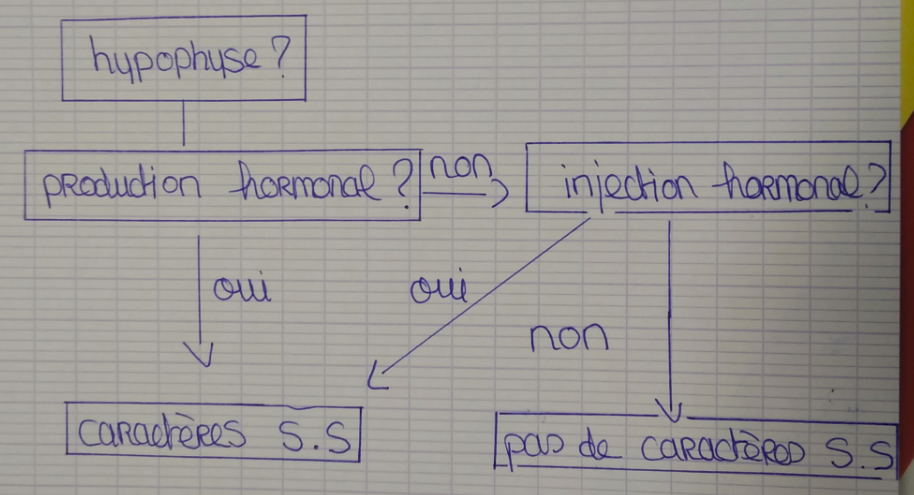 hypophyse ?
production hormonal ?
non
injection hormonal ?
oui
oui
non
caractères S.S
pas de caractères S.S